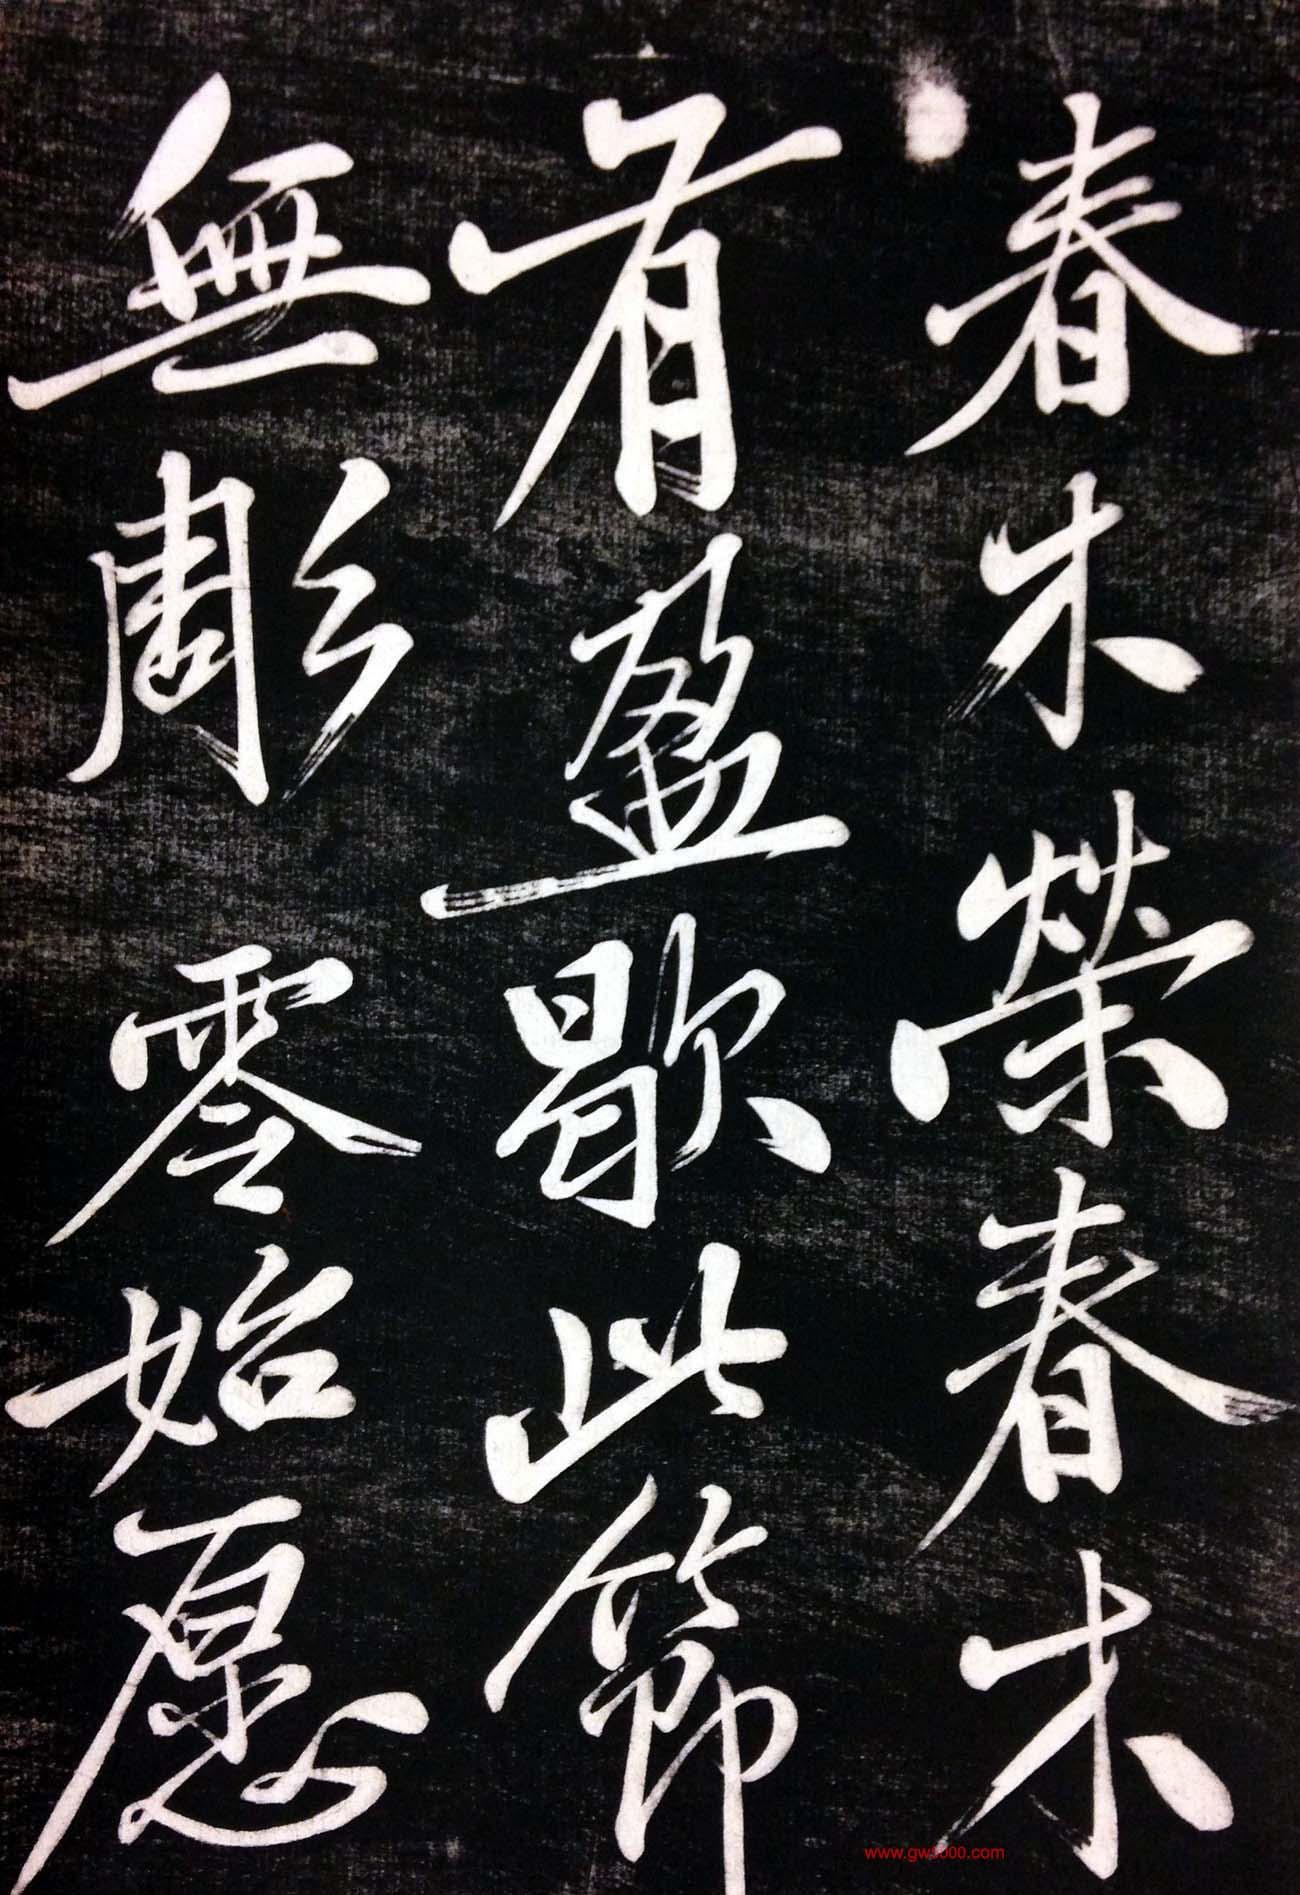 春木荣春木
有盈歇此節
無彫零始愿
www.gw5000.com